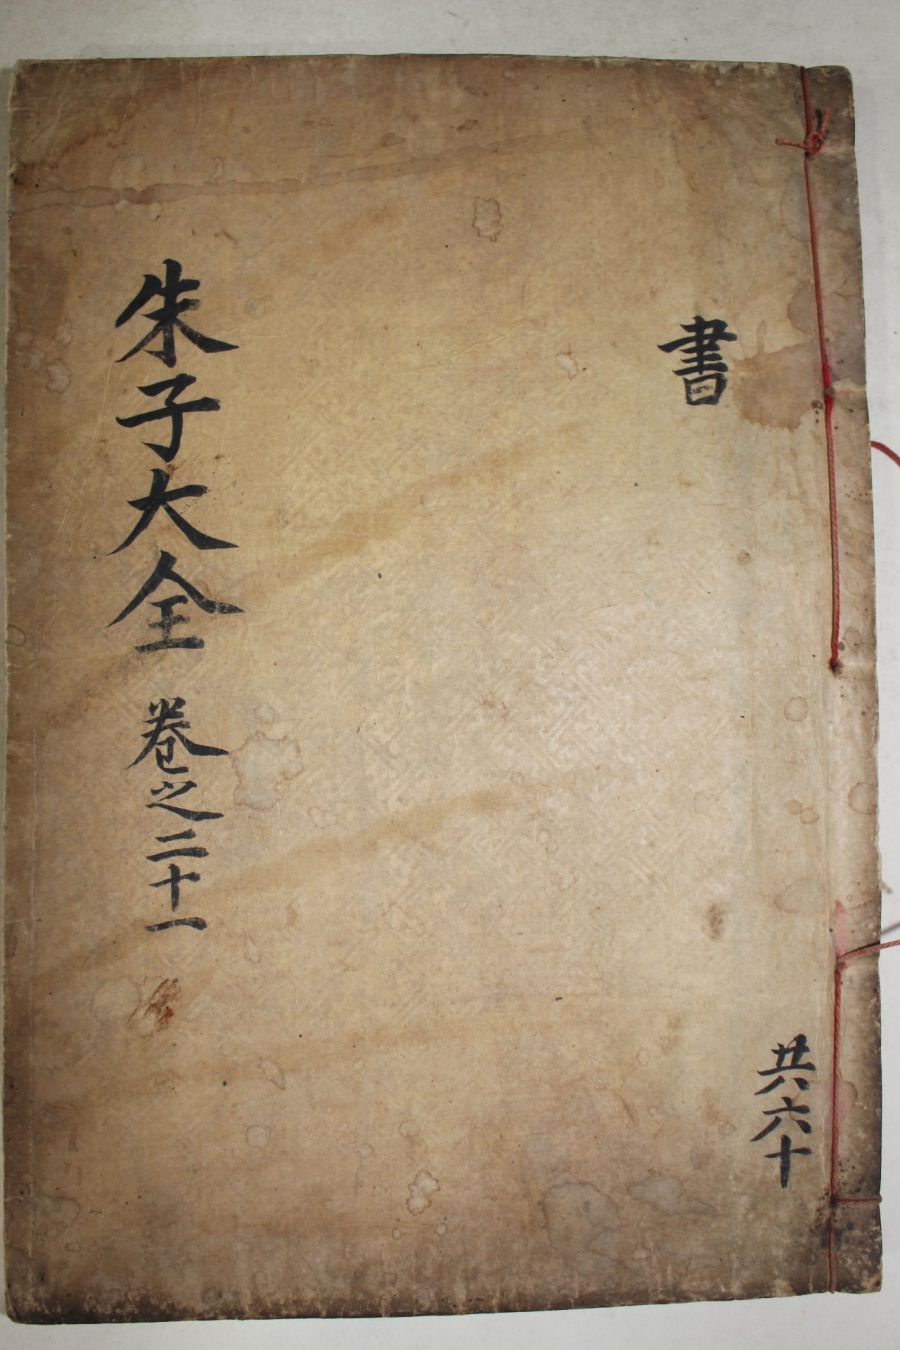 書
共六十
朱子大全 卷之二十一